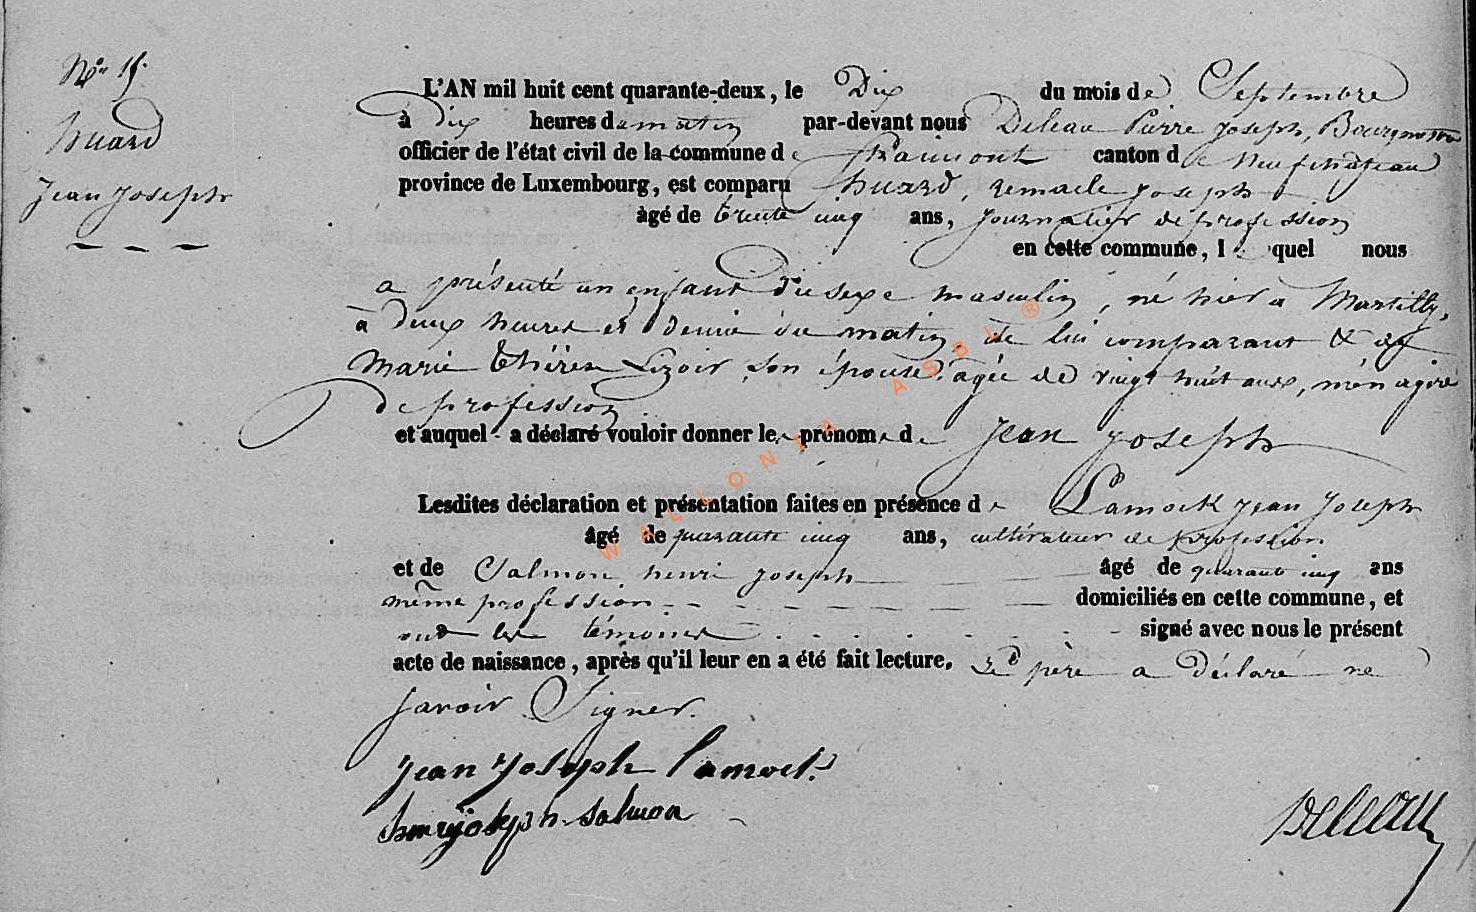 N° 15.
huard
Jean Joseph
L'AN mil huit cent quarante-deux, le Dix du mois de Septembre
à dix heures du matin par-devant nous Deleau Pierre Joseph, Bourgmestre
officier de l'état civil de la commune de Straimont canton de Neufchâteau
province de Luxembourg, est comparu huard, remacle joseph
âgé de trente cinq ans, journalier de profession
en cette commune, lequel nous
a présenté un enfant du sexe masculin, né hier à Martilly,
à deux heures et demie du matin, de lui comparant & de
Marie thérèse Lizoir, son épouse, agée de vingt huit ans, ménagère
de profession
et auquel a déclaré vouloir donner les prénoms de Jean joseph
Lesdites déclaration et présentation faites en présence de Lamock Jean Joseph
âgé de quarante cinq ans, cultivateur de profession
et de Salmon, henri joseph âgé de quarante cinq ans
même profession domiciliés en cette commune, et
ont les témoins signé avec nous le présent
acte de naissance, après qu'il leur en a été fait lecture. Le père a déclaré ne
savoir Signer.
jean joseph lamock
henry joseph salmon
Deleau
WALLONIA ASBL ®